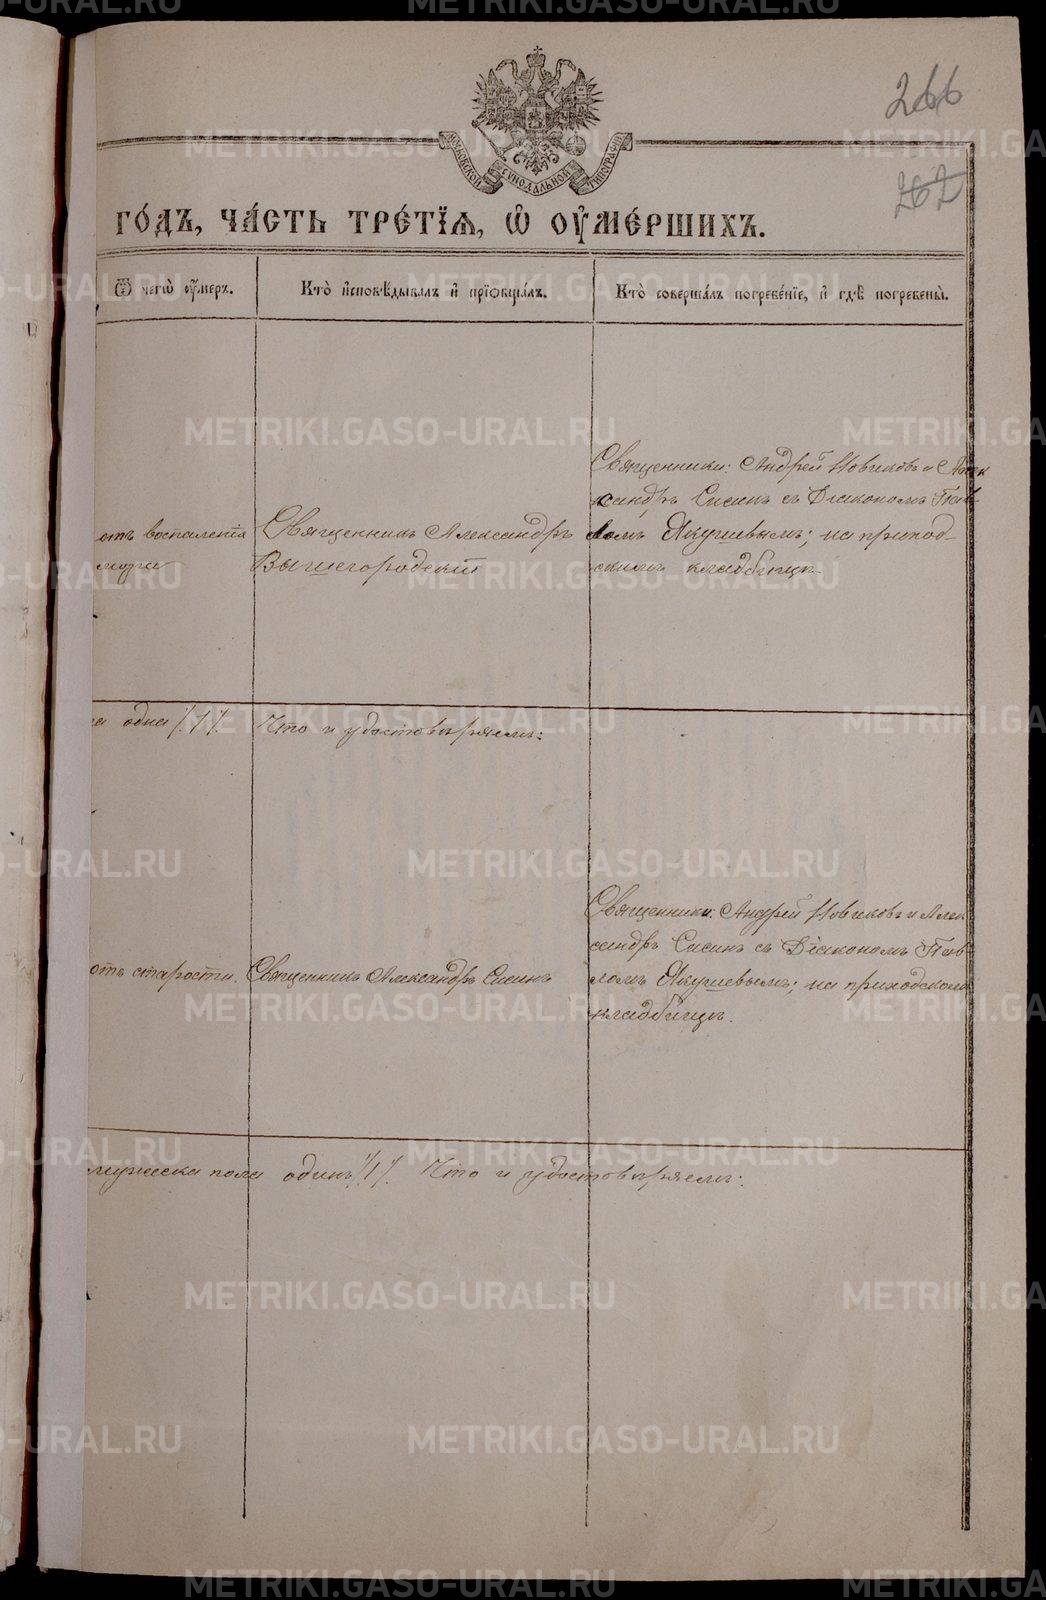 266
262
МОСКОВСКОЙ СѴНОДАЛЬНОЙ ТИПОГРАФІИ
ГО́ДЪ, ЧА́СТЬ ТРЕ́ТІѦ, Ѡ҆ ОУ҆МЕ́РШИХЪ.
Ѿ чегѡ̀ оу҆́меръ.
Кто̀ и҆сповѣ́дывалъ и҆ прїѡбща́лъ.
Кто̀ соверша́лъ погребе́нїе, и҆ гдѣ̀ погребены̀.
отъ воспаленія
мозга
Священникъ Александръ
Вышегородскій
Священники: Андрей Новиковъ и Алек
сандръ Сисинъ съ Діакономъ Пав-
ломъ Якушевымъ; на приход-
скомъ кладбищѣ.
одна /1/. Что и удостовѣряемъ:
отъ старости.
Священникъ Александръ Сисинъ
Священники: Андрей Новиковъ и Алек
сандръ Сисинъ съ Діакономъ Пав-
ломъ Якушевымъ; на приходскомъ
кладбищѣ.
мужеска пола одинъ /1/. Что и удостовѣряемъ:
METRIKI.GASO-URAL.RU